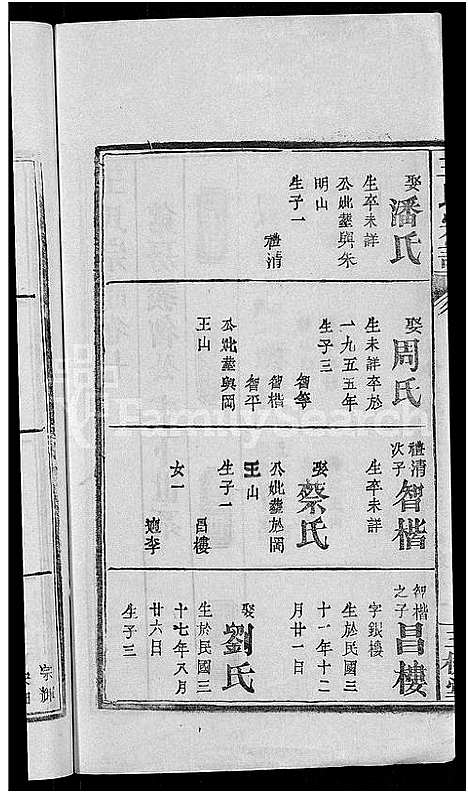 娶潘氏
生卒未詳
公妣葬與朱
明山
生子一
禮清
娶周氏
生未詳卒於
一九五五年
生子三
智等
智楷
智平
公妣葬與岡
王山
禮清
次子
智楷
生卒未詳
娶蔡氏
公妣葬於岡
王山
生子一
昌樓
女一
適李
智楷
之子
昌樓
字銀樓
生於民國三
十一年十二
月廿一日
娶劉氏
生於民國三
十七年八月
廿六日
生子三
宗輝
FamilySearch